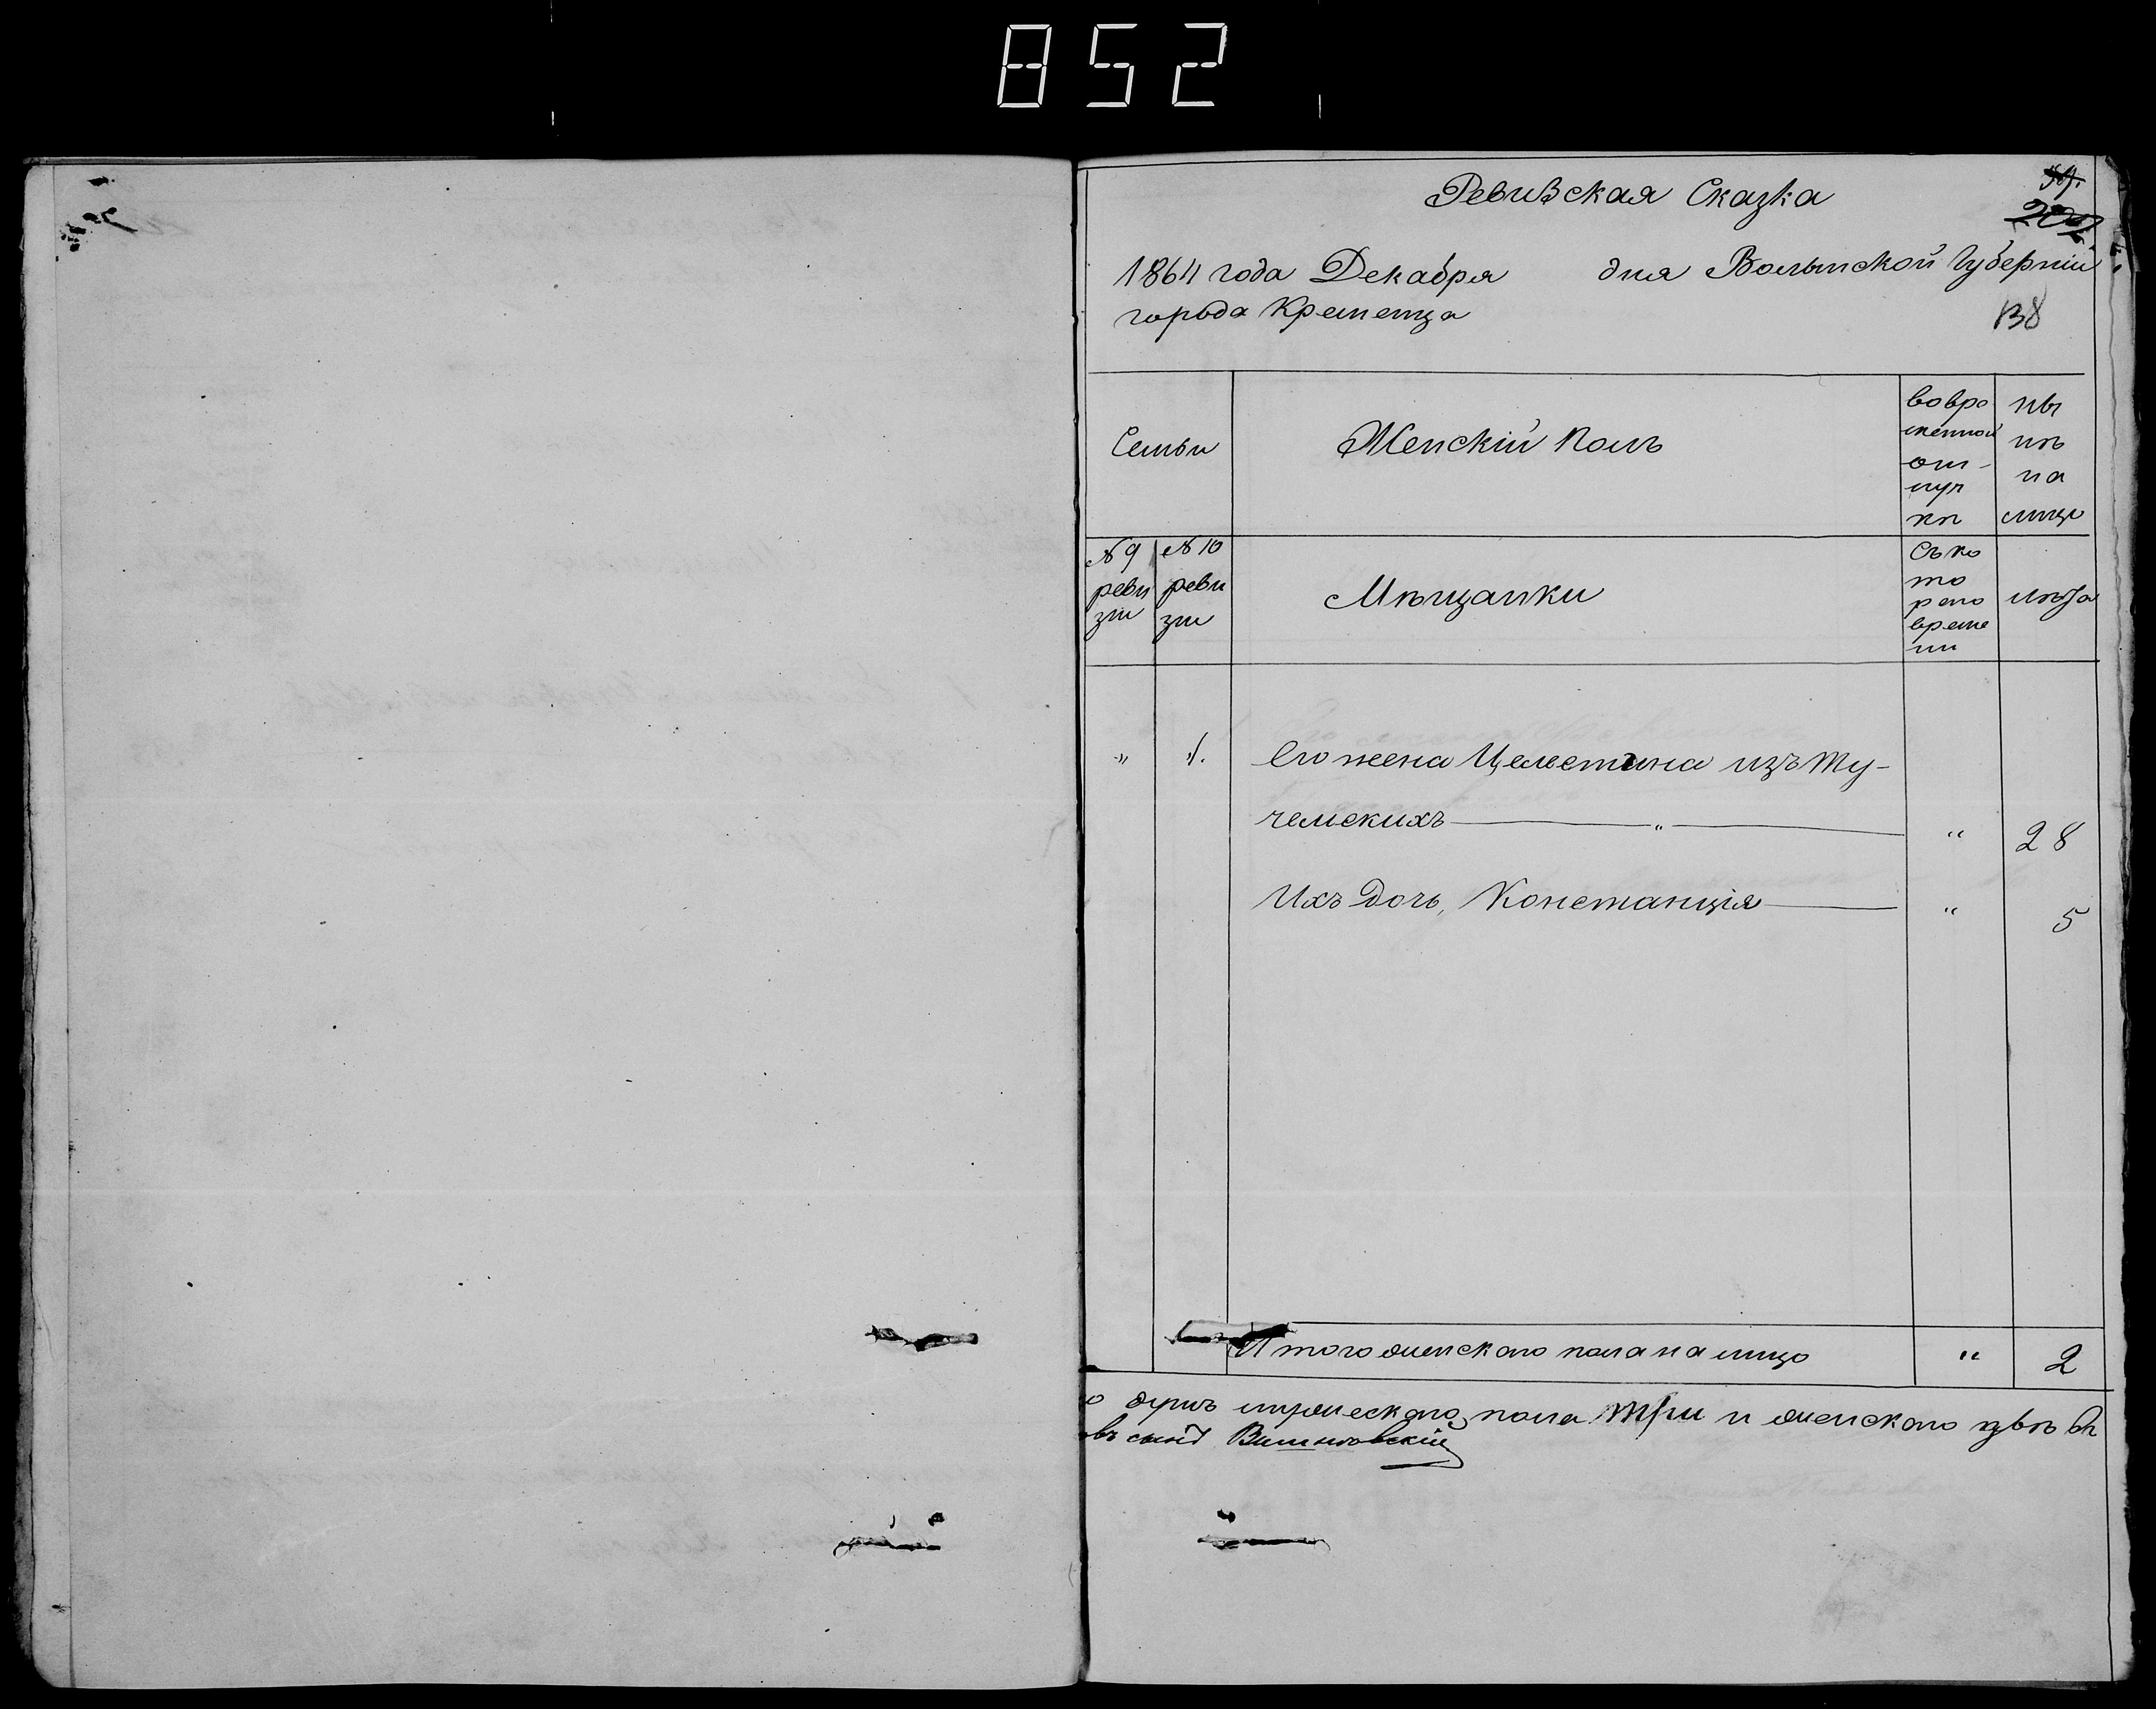 852
Ревизская Сказка
202
1864 года Декабря дня Волынской Губерніи
города Кременца
138
Семьи
Женскій полъ
во вре
менной
от-
луч
кѣ
ны
нѣ
на
лицо
№ 9
реви
зіи
№ 10
реви
зіи
Мѣщанки
Съ ко
то
раго
време
ни
лѣта
" 1. Его жена Целестина изъ Ту-
чемскихъ " " 28
Ихъ дочь, Констанція " 5
Итого женскаго пола на лицо " 2
душъ мужескаго пола три и женскаго двѣ въ
Вишновскій